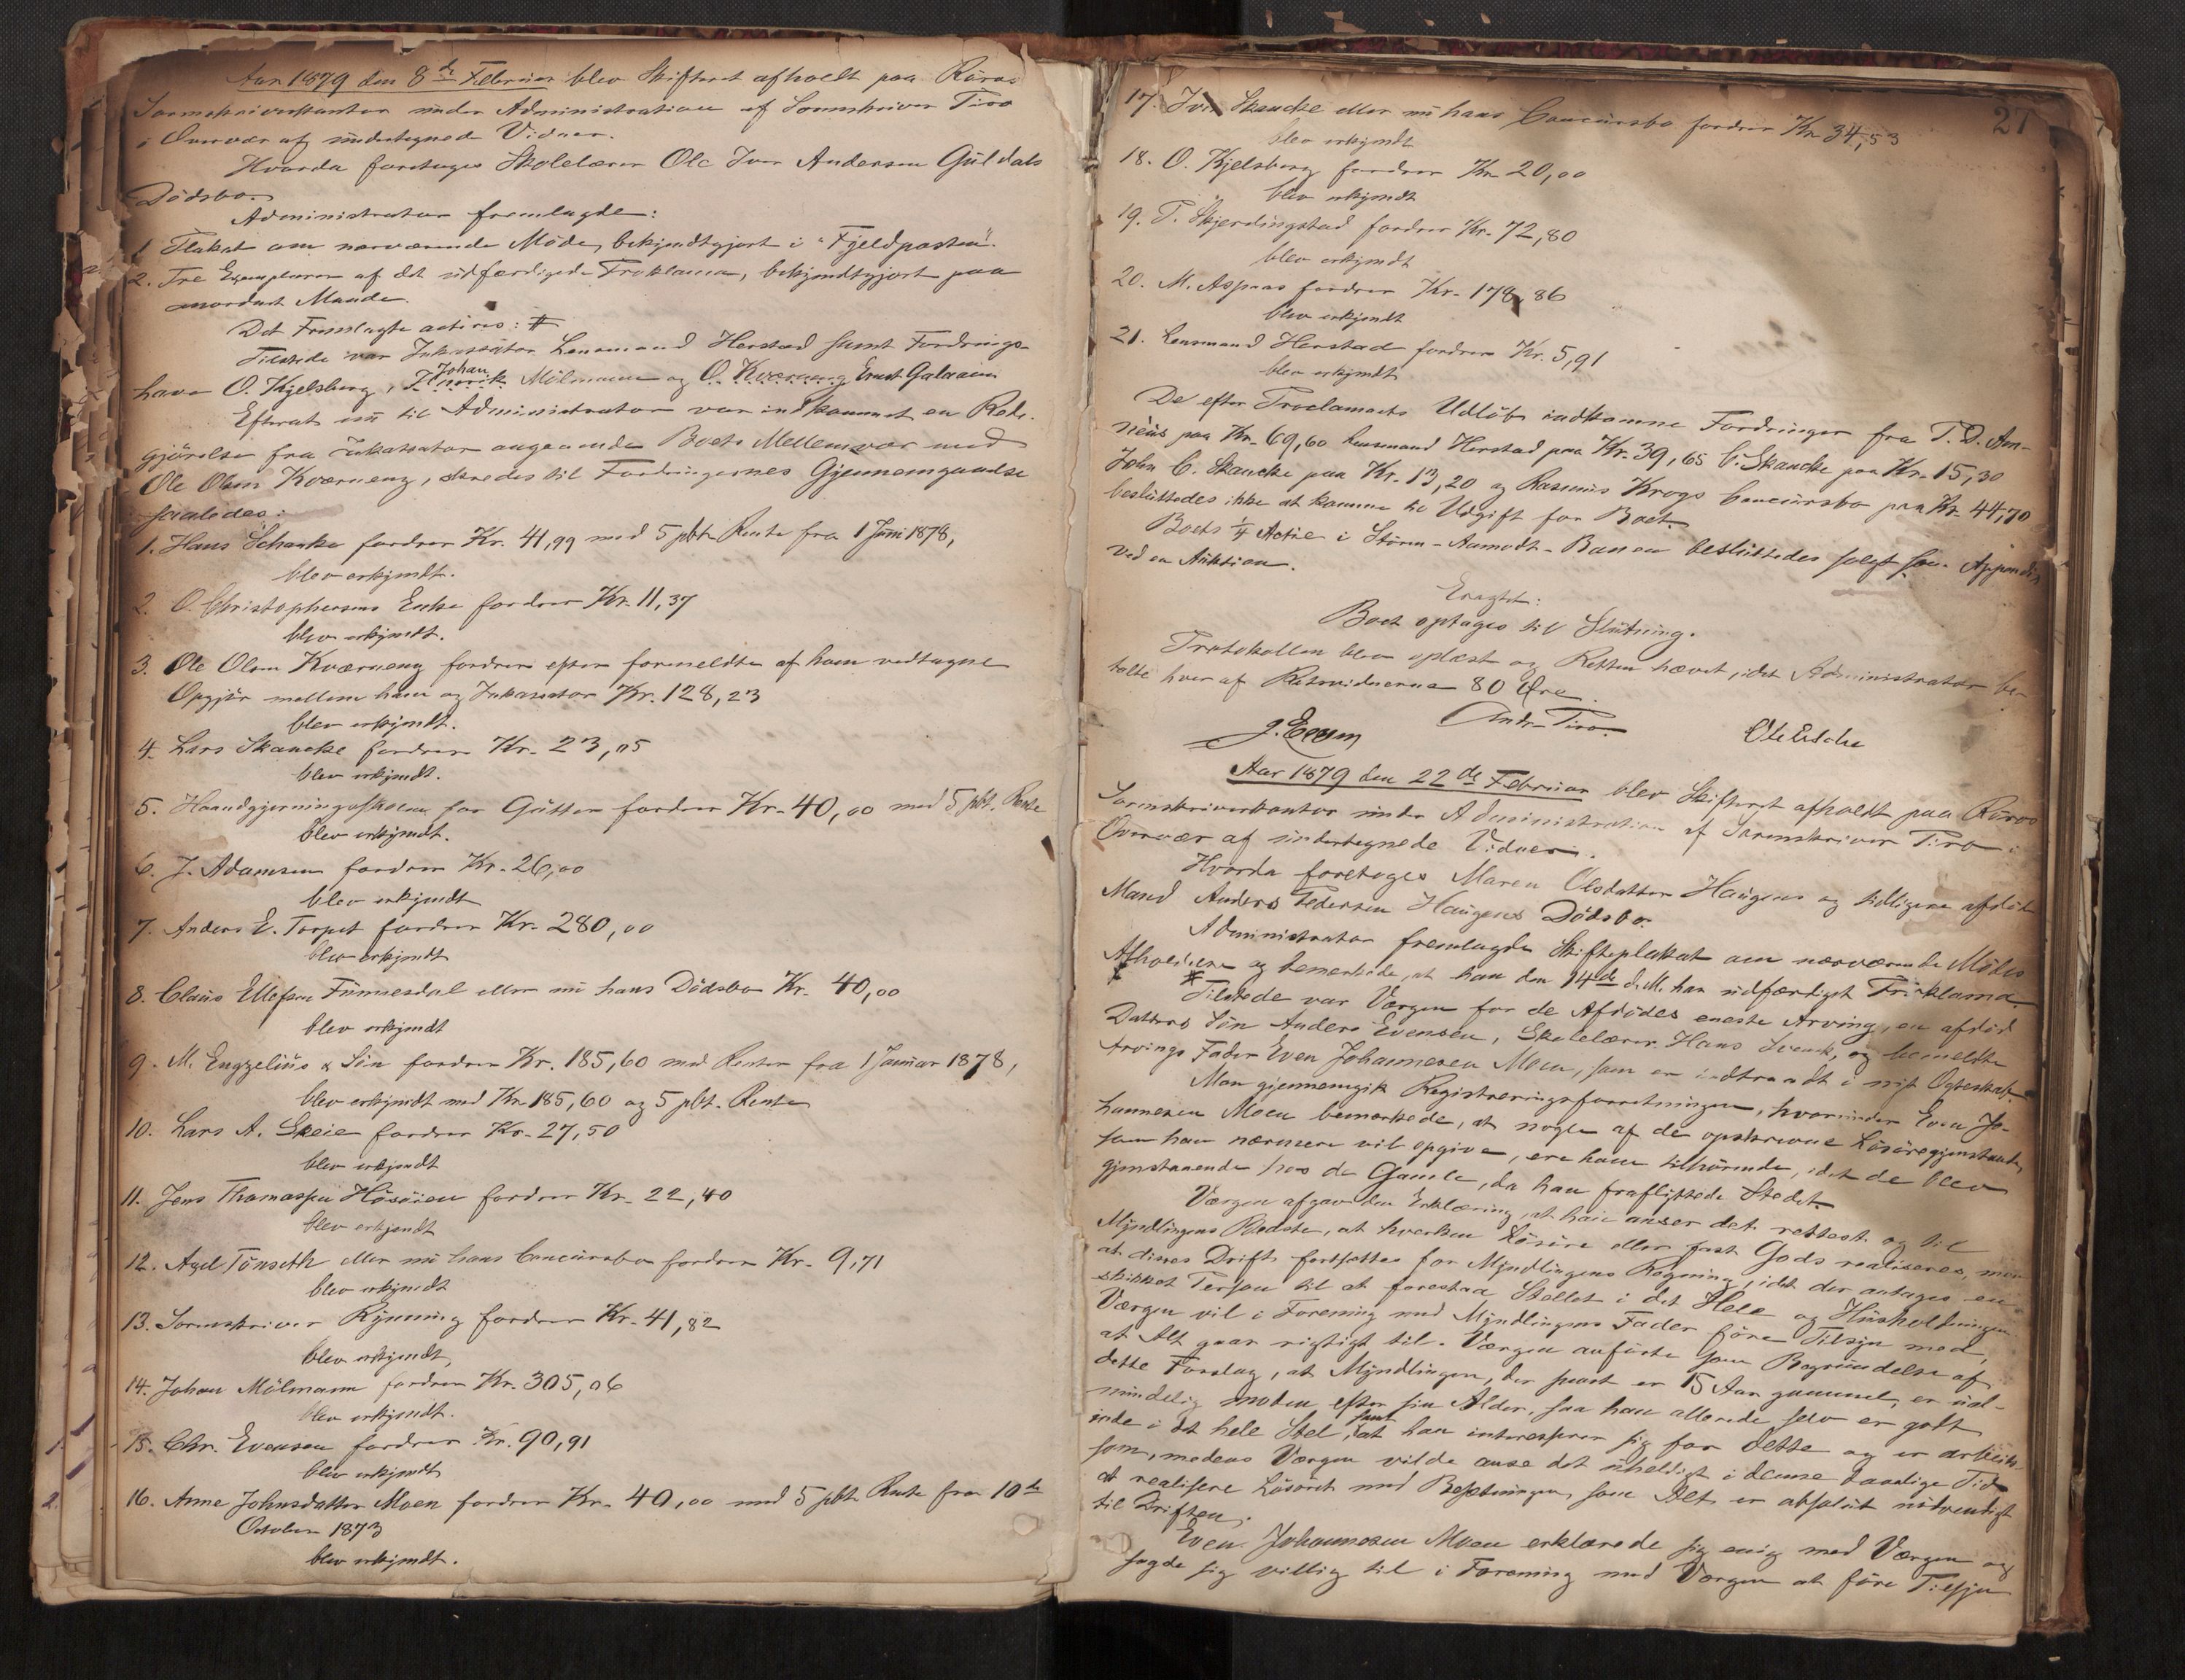 Aar 1879 den 8de Februar blev Skifteret afholdt paa Röros
Sorenskriverkontor under Administration af Sorenskriver Tiro
i Overvær af undertegnede Vidner.
Hvorda foretages Skolelærer Ole Iver Andersen Guldals
Dödsbo.
Administrator fremlagde:
1 Plakat om nærværende Möde, bekjendtgjort i "Fjeldposten".
2. Tre Exemplarer af det udfærdigede Proklama, bekjendtgjort paa
anordnet Maade.
Det Fremlagte acteres: #
Tilstede var Inkassator Lensmand Herstad samt Fordrings-
havere O. Kjelsberg, Johan Mölmann og O. Kværneng Ernst Galaaen
Efterat nu til Administrator var indkommet en Rede-
gjörelse fra Inkassator angaaende Boets Mellemvær med
Ole Olsen Kværneng, skredes til Fordringernes Gjennemgaaelse
saaledes:
1. Hans Schanke fordrer Kr. 41,99 med 5 pct. Rente fra 1 Juni 1878,
blev erkjendt.
2. O. Christophersens Enke fordrer Kr. 11,37
blev erkjendt.
3. Ole Olsen Kværneng fordrer efter formeldte af ham vedtagne
Opgjör mellem ham og Inkassator Kr. 128,23
blev erkjendt.
4. Lars Skancke fordrer Kr. 23,05
blev erkjendt.
5. Haandgjerningsskolen for Gutter fordrer Kr. 40,00 med 5 pct. Rente
blev erkjendt.
6. J. Adamsen fordrer Kr. 26,00
blev erkjendt
7. Anders E. Torpet fordrer Kr. 280,00
blev erkjendt
8. Claus Ellefsen Funnesdal eller nu hans Dödsbo Kr. 40,00
blev erkjendt
9. M. Engzelius & Sön fordrer Kr. 185,60 med Renter fra 1 Januar 1878,
blev erkjendt med Kr. 185,60 og 5 pct. Rente
10. Lars A. Skeie fordrer Kr. 27,50
blev erkjendt
11. Jens Thomassen Hösöien fordrer Kr. 22,40
blev erkjendt
12. Axel Tönseth eller nu hans Concursbo fordrer Kr. 9,71
blev erkjendt
13. Sorenskriver Rynning fordrer Kr. 41,82
blev erkjendt,
14. Johan Mölmann fordrer Kr. 305,06
blev erkjendt.
15. Chr. Evensen fordrer Kr. 90,91
blev erkjendt
16. Anne Johnsdatter Moen fordrer Kr. 40,00 med 5 pct. Rente fra 10de
October 1873
blev erkjendt.
27
17. Iver Skancke eller nu hans Concursbo fordrer Kr. 34,53
blev erkjendt
18. O. Kjelsberg fordrer Kr. 20,00
blev erkjendt
19. P. Skjerdingstad fordrer Kr. 72,80
blev erkjendt
20. M. Aspaas fordrer Kr. 178,86
blev erkjendt
21. Lensmand Herstad fordrer Kr. 5,91
blev erkjendt
De efter Proclamaets Udlöb indkomne Fordringer fra P. D. Am-
néus paa Kr. 69,60 Lensmand Herstad paa Kr. 39,65 C. Skancke paa Kr. 15,30
John C. Skancke paa Kr. 13,20 og Rasmus Krogs Concursbo paa Kr. 44,70
besluttedes ikke at komme til Udgift for Boet.
Boets 1/4 Actie i Stören-Aamodt-Banen besluttedes solgt som Appendix
ved en Auktion.
Eragtet:
Boet optages til Slutning.
Protokollen blev oplæst og Retten hævet, idet Administrator be-
talte hver af Retsvidnerne 80 Öre.
Andr. Tiro.
Aar 1879 den 22de Februar blev Skifteret afholdt paa Röros
Sorenskriverkontor under Administration af Sorenskriver Tiro i
Overvær af undertegnede Vidner.
Hvorda foretoges Maren Olsdatter Haugens og tidligere afdöde
Mand Anders Pedersen Haugens Dödsbo.
Administrator fremlagde Skifteplakat om nærværende Mödes
Afholdelse og bemærkede, at han den 14de d. M. har udfærdiget Proklama.
Tilstede var Værgen for de Afdödes eneste Arving, en afdöd
Datters Sön Anders Evensen, Skolelærer Hans Svensk, og bemeldte
Arvings Fader Even Johannesen Moen, som er indtraadt i nyt Ægteskab.
Man gjennemgik Registreringsforretningen, hvorunder Even Jo-
hannesen Moen bemærkede, at nogle af de opskrevne Lösöregjenstande,
som han nærmere vil opgive, ere ham tilhörende, idet de blev
gjenstaaende hos de Gamle, da han fraflyttede Stedet.
Værgen afgav den Erklæring, at han anser det rettest og til
Myndlingens Bedste, at hverken Lösöre eller fast Gods realiseres, men
at dennes Drift fortsættes for Myndlingens Regning, idet der antages en
skikket Person til at forestaa Stellet i det Hele og Husholdningen
Værgen vil i Forening med Myndlingens Fader före Tilsyn med,
at Alt gaar rigtigt til. Værgen anförte som Begrundelse af
dette Forslag, at Myndlingen, der snart er 15 Aar gammel, er ual-
mindelig moden efter sin Alder, saa han allerede selv er godt
inde i det hele Stel, samt at han interesserer sig for dette og er arbeids-
som, medens Værgen vilde anse det uheldigt i denne daarlige Tid
at realisere Lösöret med Besætningen, som Alt er absolut nödvendigt
til Driften.
Even Johannesen Moen erklærede sig enig med Værgen og
sagde sig villig til i Forening med Værgen at före Tilsyn